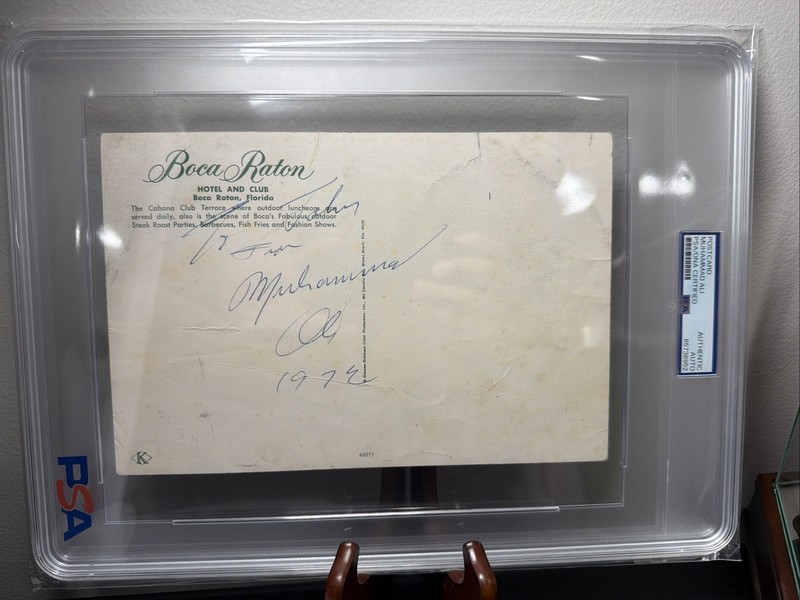 Boca Raton
HOTEL AND CLUB
Boca Raton, Florida
The Cabana Club Terrace where outdoor luncheons are
served daily, also is the scene of Boca's Fabulous outdoor
Steak Roast Parties, Barbecues, Fish Fries and Fashion Shows.
To John
From
Muhammad
Ali
1972
K
60377
PSA
POSTCARD
MUHAMMAD ALI
PSA/DNA CERTIFIED
AUTHENTIC
AUTO
85738952